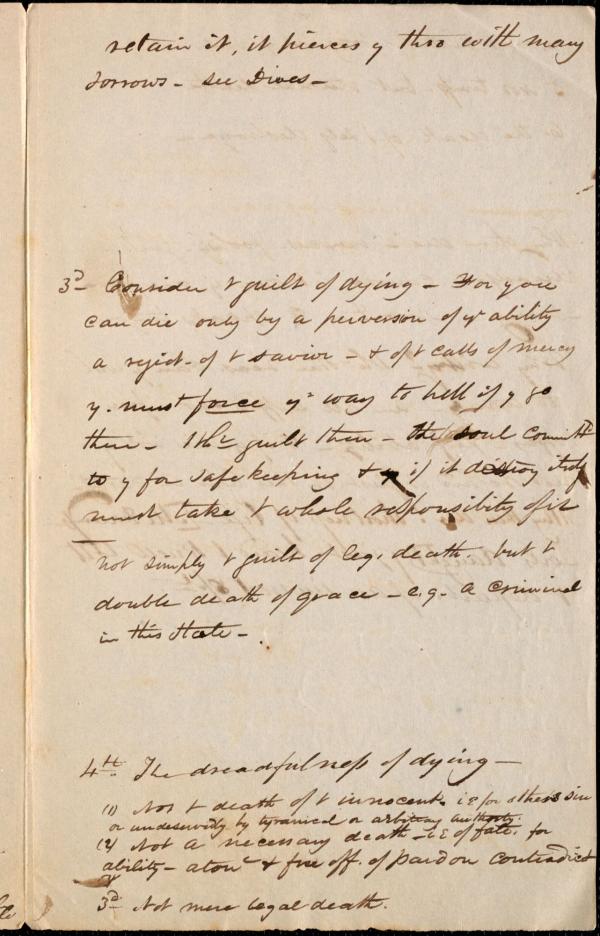 retain it, it pierces y thro with many
sorrows - see Dives -
3d Consider t guilt of dying - For you
can die only by a perversion of yr ability
a reject. of t savior - & of t calls of mercy
y. must force yr way to hell if y go
there - guilt then - the soul committd
to y for safe keeping & if it destroy itself
must take t whole responsibility of it
not simply t guilt of leg. death. but t
double death of grace - e.g. a criminal
in this State -
4th The dreadfulness of dying -
(1) Not t death of t innocent. i e for others sin
or undeservedly by tyranical or arbitrary authority.
(2) Not a necessary death - i e of fate. for
ability - aton & free off. of pardon contradict
3d Not mere legal death.